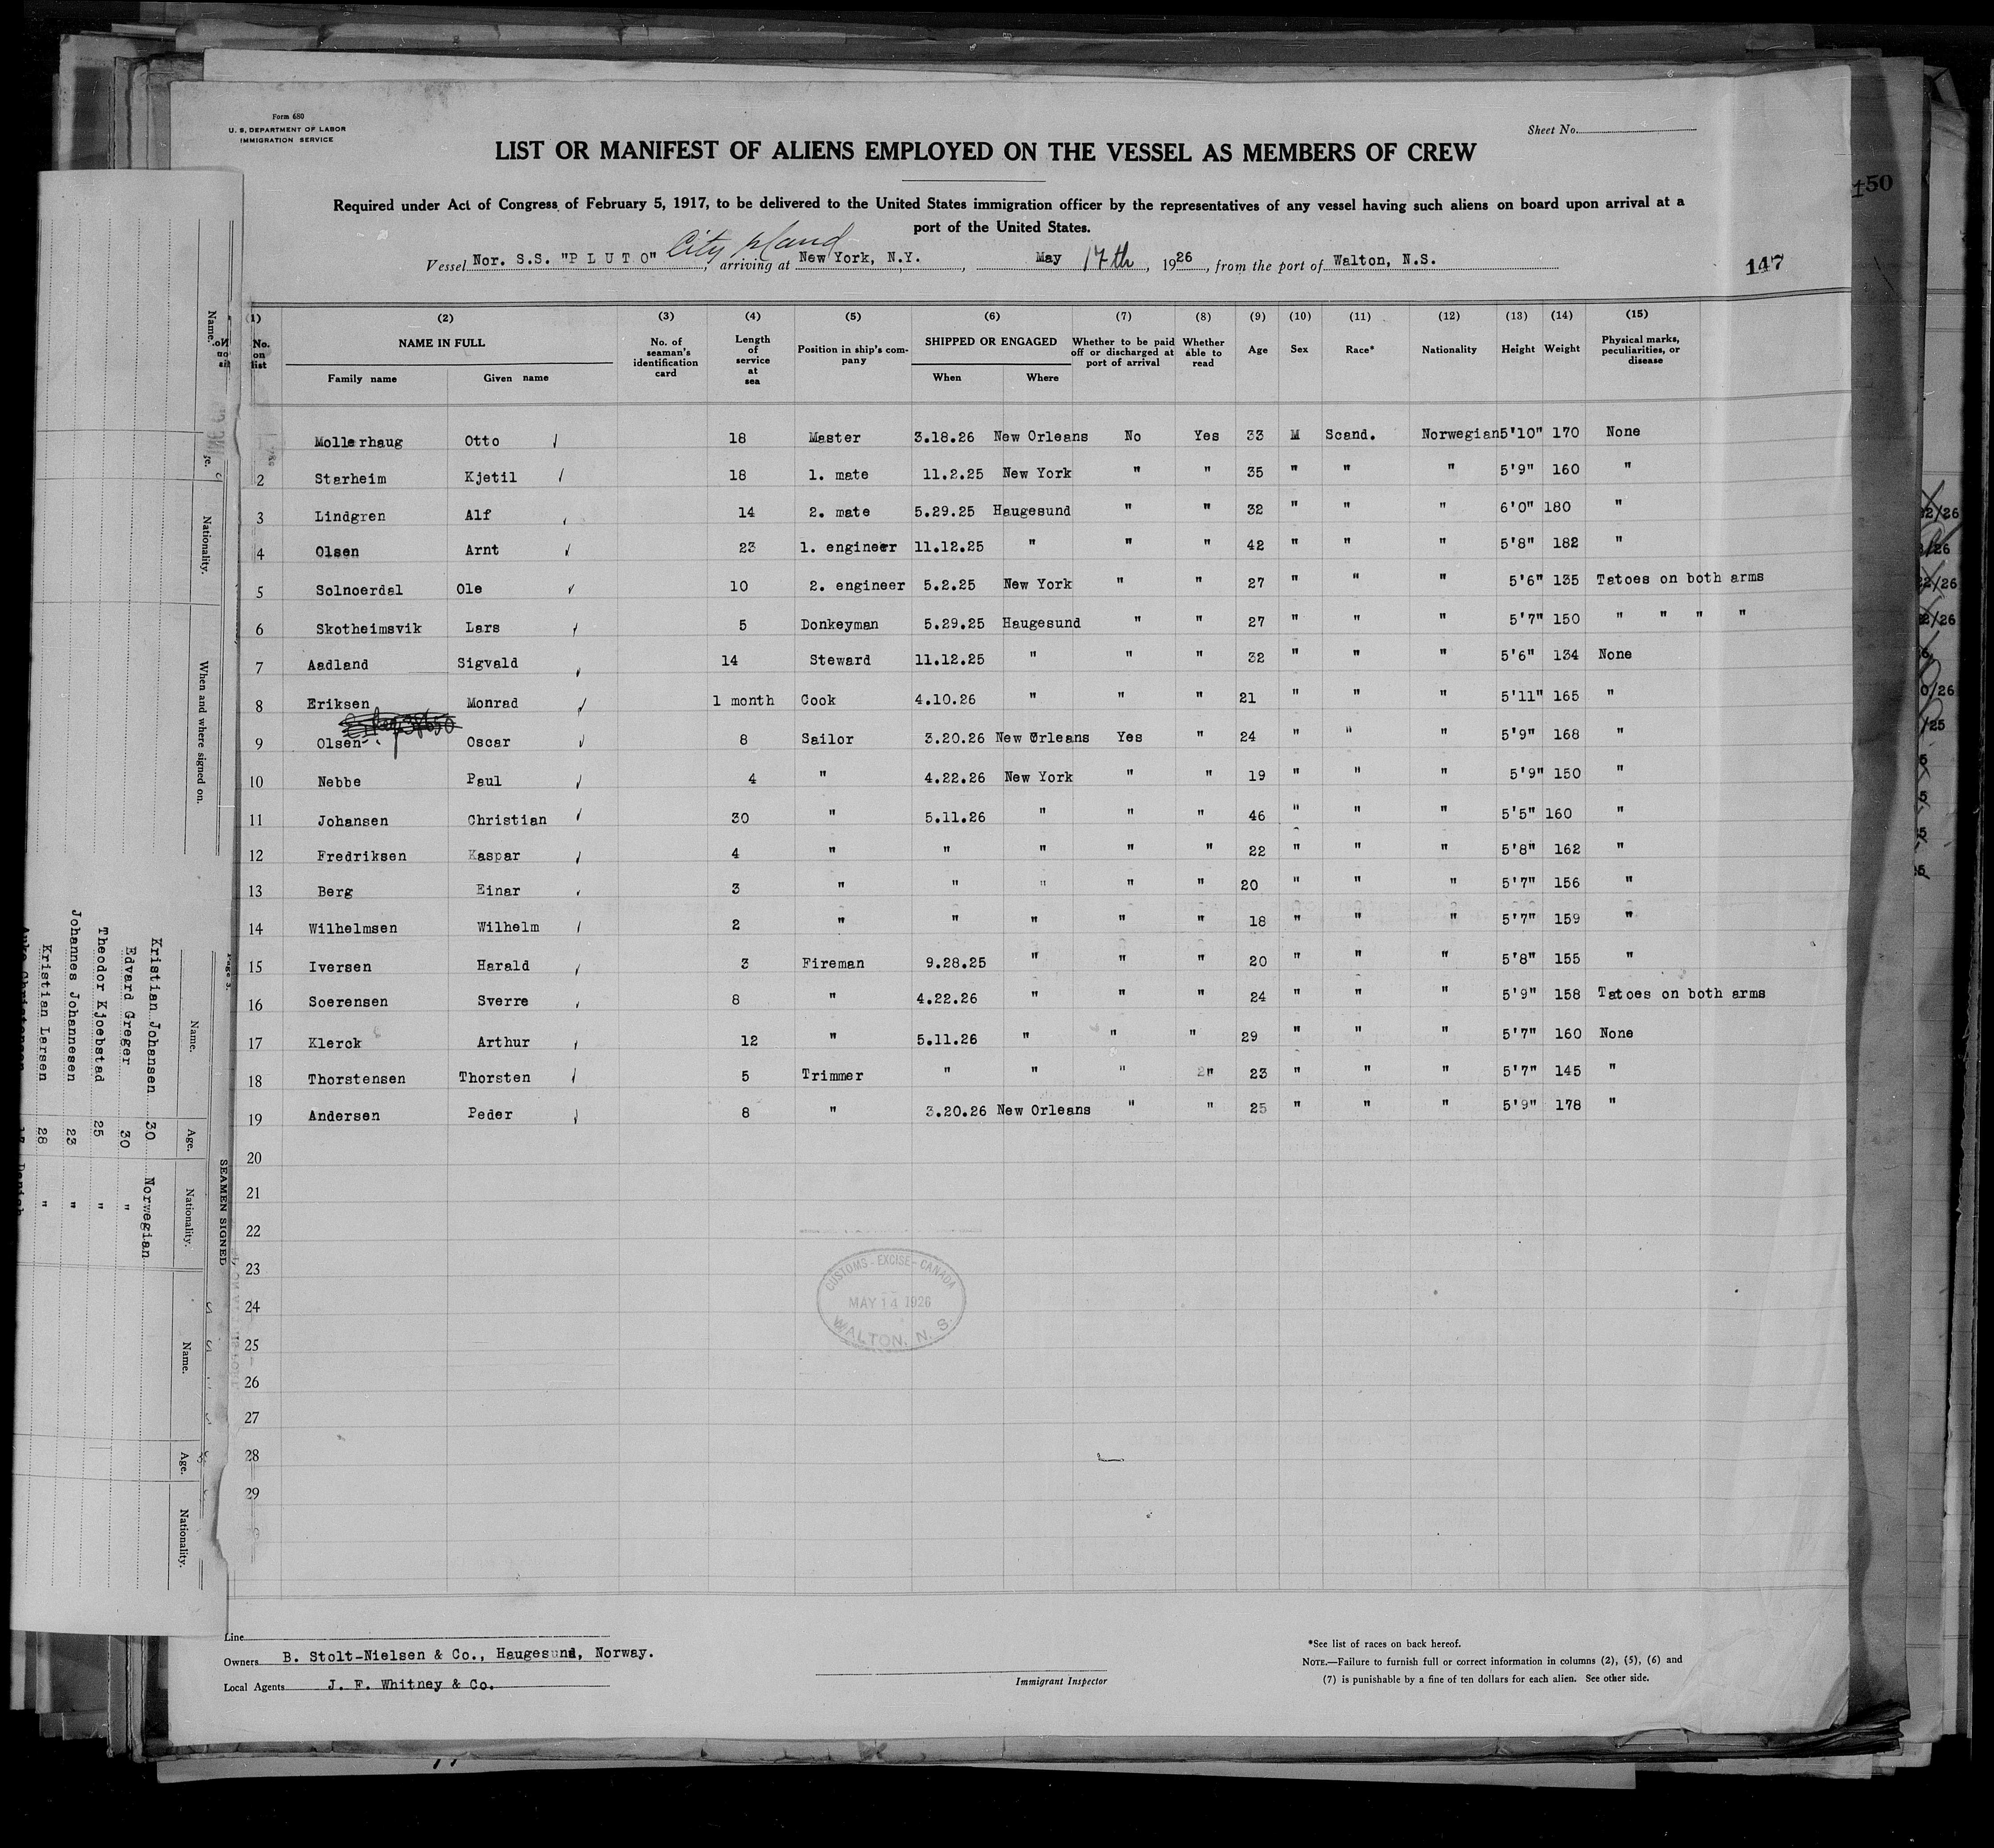 Form 680
U. S. DEPARTMENT OF LABOR
IMMIGRATION SERVICE
Sheet No.
LIST OR MANIFEST OF ALIENS EMPLOYED ON THE VESSEL AS MEMBERS OF CREW
Required under Act of Congress of February 5, 1917, to be delivered to the United States immigration officer by the representatives of any vessel having such aliens on board upon arrival at a
port of the United States.
Vessel Nor. S.S. "P L U T O" City Island, arriving at New York, N.Y., May 17th, 1926, from the port of Walton, N.S.
147
150
(1) (2) (3) (4) (5) (6) (7) (8) (9) (10) (11) (12) (13) (14) (15)
No. on list NAME IN FULL Family name Given name No. of seaman's identification card Length of service at sea Position in ship's company SHIPPED OR ENGAGED When Where Whether to be paid off or discharged at port of arrival Whether able to read Age Sex Race* Nationality Height Weight Physical marks, peculiarities, or disease
Mollerhaug Otto 18 Master 3.18.26 New Orleans No Yes 33 M Scand. Norwegian 5'10" 170 None
2 Starheim Kjetil 18 1. mate 11.2.25 New York " " 35 " " " 5'9" 160 "
3 Lindgren Alf 14 2. mate 5.29.25 Haugesund " " 32 " " " 6'0" 180 "
4 Olsen Arnt 23 1. engineer 11.12.25 " " " 42 " " " 5'8" 182 "
5 Solnoerdal Ole 10 2. engineer 5.2.25 New York " " 27 " " " 5'6" 135 Tatoes on both arms
6 Skotheimsvik Lars 5 Donkeyman 5.29.25 Haugesund " " 27 " " " 5'7" 150 " " " "
7 Aadland Sigvald 14 Steward 11.12.25 " " " 32 " " " 5'6" 134 None
8 Eriksen Monrad 1 month Cook 4.10.26 " " " 21 " " " 5'11" 165 "
9 Olsen Oscar 8 Sailor 3.20.26 New Orleans Yes " 24 " " " 5'9" 168 "
10 Nebbe Paul 4 " 4.22.26 New York " " 19 " " " 5'9" 150 "
11 Johansen Christian 30 " 5.11.26 " " " 46 " " " 5'5" 160 "
12 Fredriksen Kaspar 4 " " " " " 22 " " " 5'8" 162 "
13 Berg Einar 3 " " " " " 20 " " " 5'7" 156 "
14 Wilhelmsen Wilhelm 2 " " " " " 18 " " " 5'7" 159 "
15 Iversen Harald 3 Fireman 9.28.25 " " " 20 " " " 5'8" 155 "
16 Soerensen Sverre 8 " 4.22.26 " " " 24 " " " 5'9" 158 Tatoes on both arms
17 Klerck Arthur 12 " 5.11.26 " " " 29 " " " 5'7" 160 None
18 Thorstensen Thorsten 5 Trimmer " " " " 23 " " " 5'7" 145 "
19 Andersen Peder 8 " 3.20.26 New Orleans " " 25 " " " 5'9" 178 "
20
21
22
23
24
25
26
27
28
29
CUSTOMS-EXCISE-CANADA
MAY 14 1926
WALTON, N. S.
Line
Owners B. Stolt-Nielsen & Co., Haugesund, Norway.
Local Agents J. F. Whitney & Co.
Immigrant Inspector
*See list of races on back hereof.
NOTE.—Failure to furnish full or correct information in columns (2), (5), (6) and
(7) is punishable by a fine of ten dollars for each alien. See other side.
Name. Nationality. When and where signed on.
SEAMEN SIGNED
Name. Age. Nationality. Name. Age. Nationality.
Kristian Johansen 30 Norwegian
Edvard Greger 30 "
Theodor Kjoebstad 25 "
Johannes Johannesen 23 "
Kristian Larsen 28 "